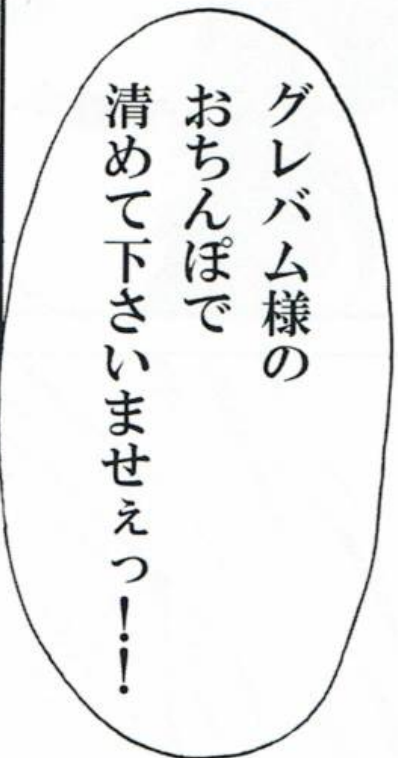 グレバム様の
おちんぽで
清めて下さいませぇっ！！